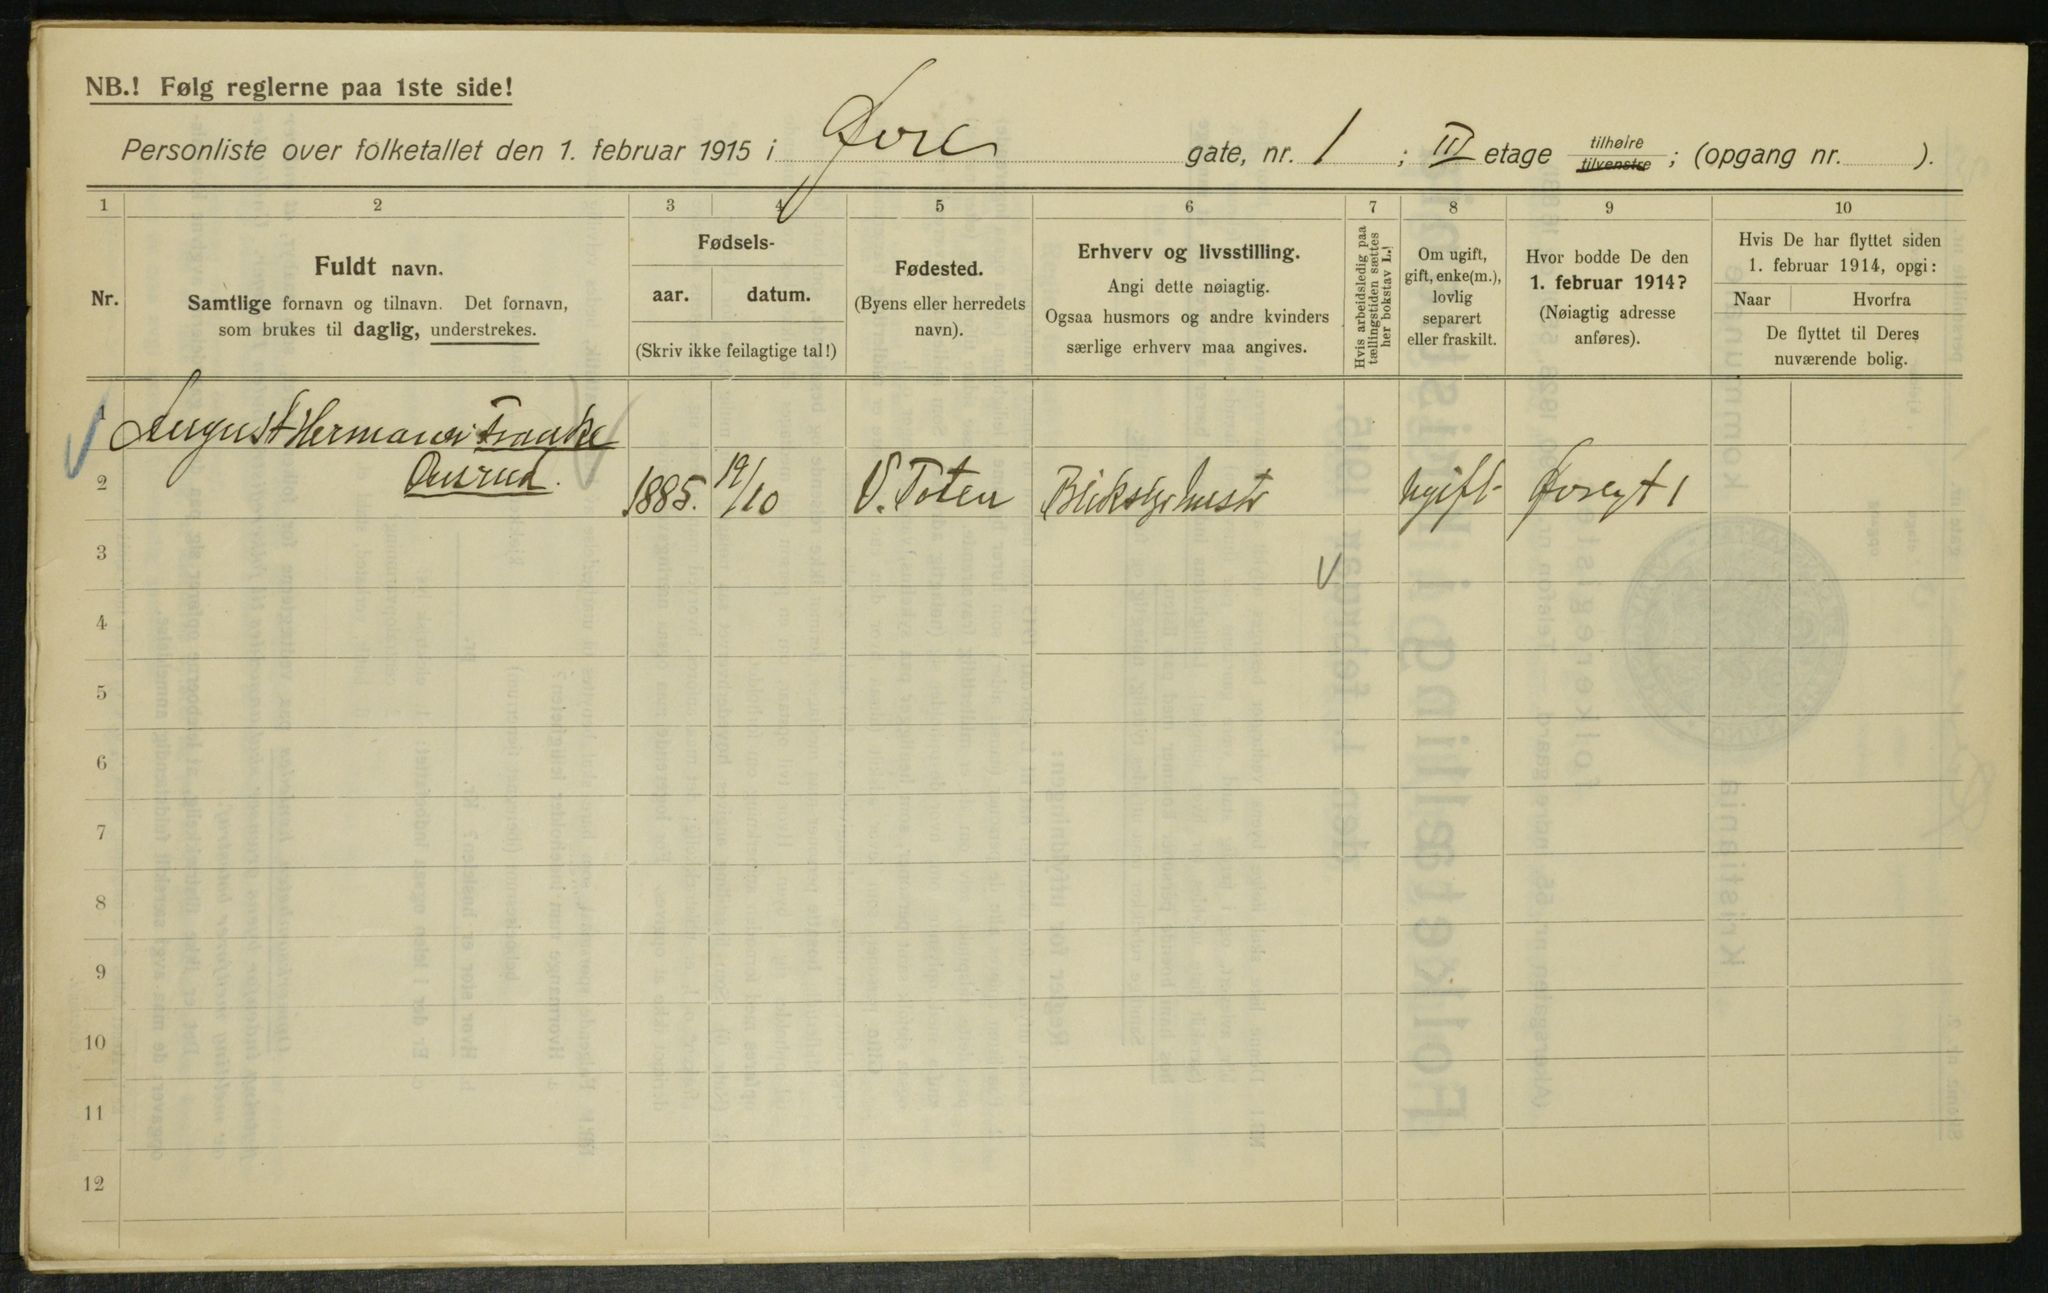 NB.! Følg reglerne paa 1ste side!
Personliste over folketallet den 1. februar 1915 i Øvre gate, nr. 1 ; III etage tilhøire tilvenstre ; (opgang nr. ).
1 2 3 4 5 6 7 8 9 10
Nr.
Fuldt navn.
Samtlige fornavn og tilnavn. Det fornavn,
som brukes til daglig, understrekes.
Fødsels-
aar. datum.
(Skriv ikke feilagtige tal!)
Fødested.
(Byens eller herredets
navn).
Erhverv og livsstilling.
Angi dette nøiagtig.
Ogsaa husmors og andre kvinders
særlige erhverv maa angives.
Hvis arbeidsledig paa
tællingstiden sættes
her bokstav L.!
Om ugift,
gift, enke(m.),
lovlig
separert
eller fraskilt.
Hvor bodde De den
1. februar 1914?
(Nøiagtig adresse
anføres).
Hvis De har flyttet siden
1. februar 1914, opgi:
Naar Hvorfra
De flyttet til Deres
nuværende bolig.
1 August Hermann Franke
2 1885. 19/10 V. Toten ugift Øvregt 1
3
4
5
6
7
8
9
10
11
12